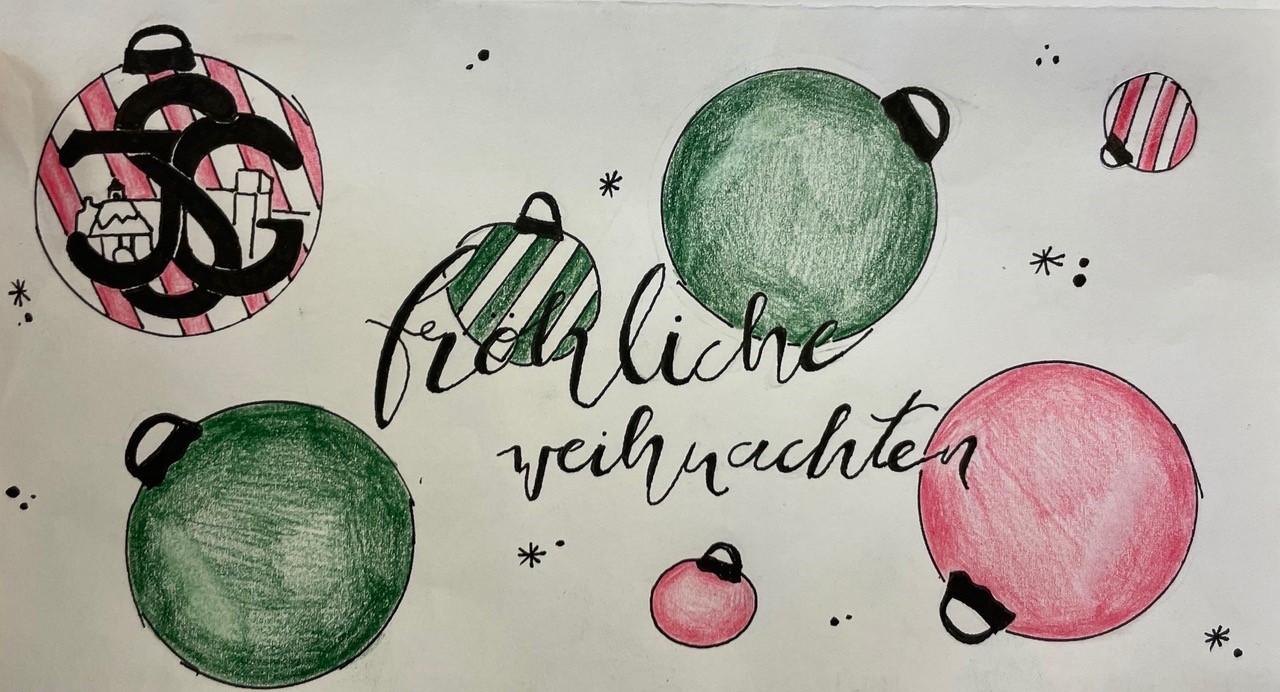 JSG
fröhliche
weihnachten